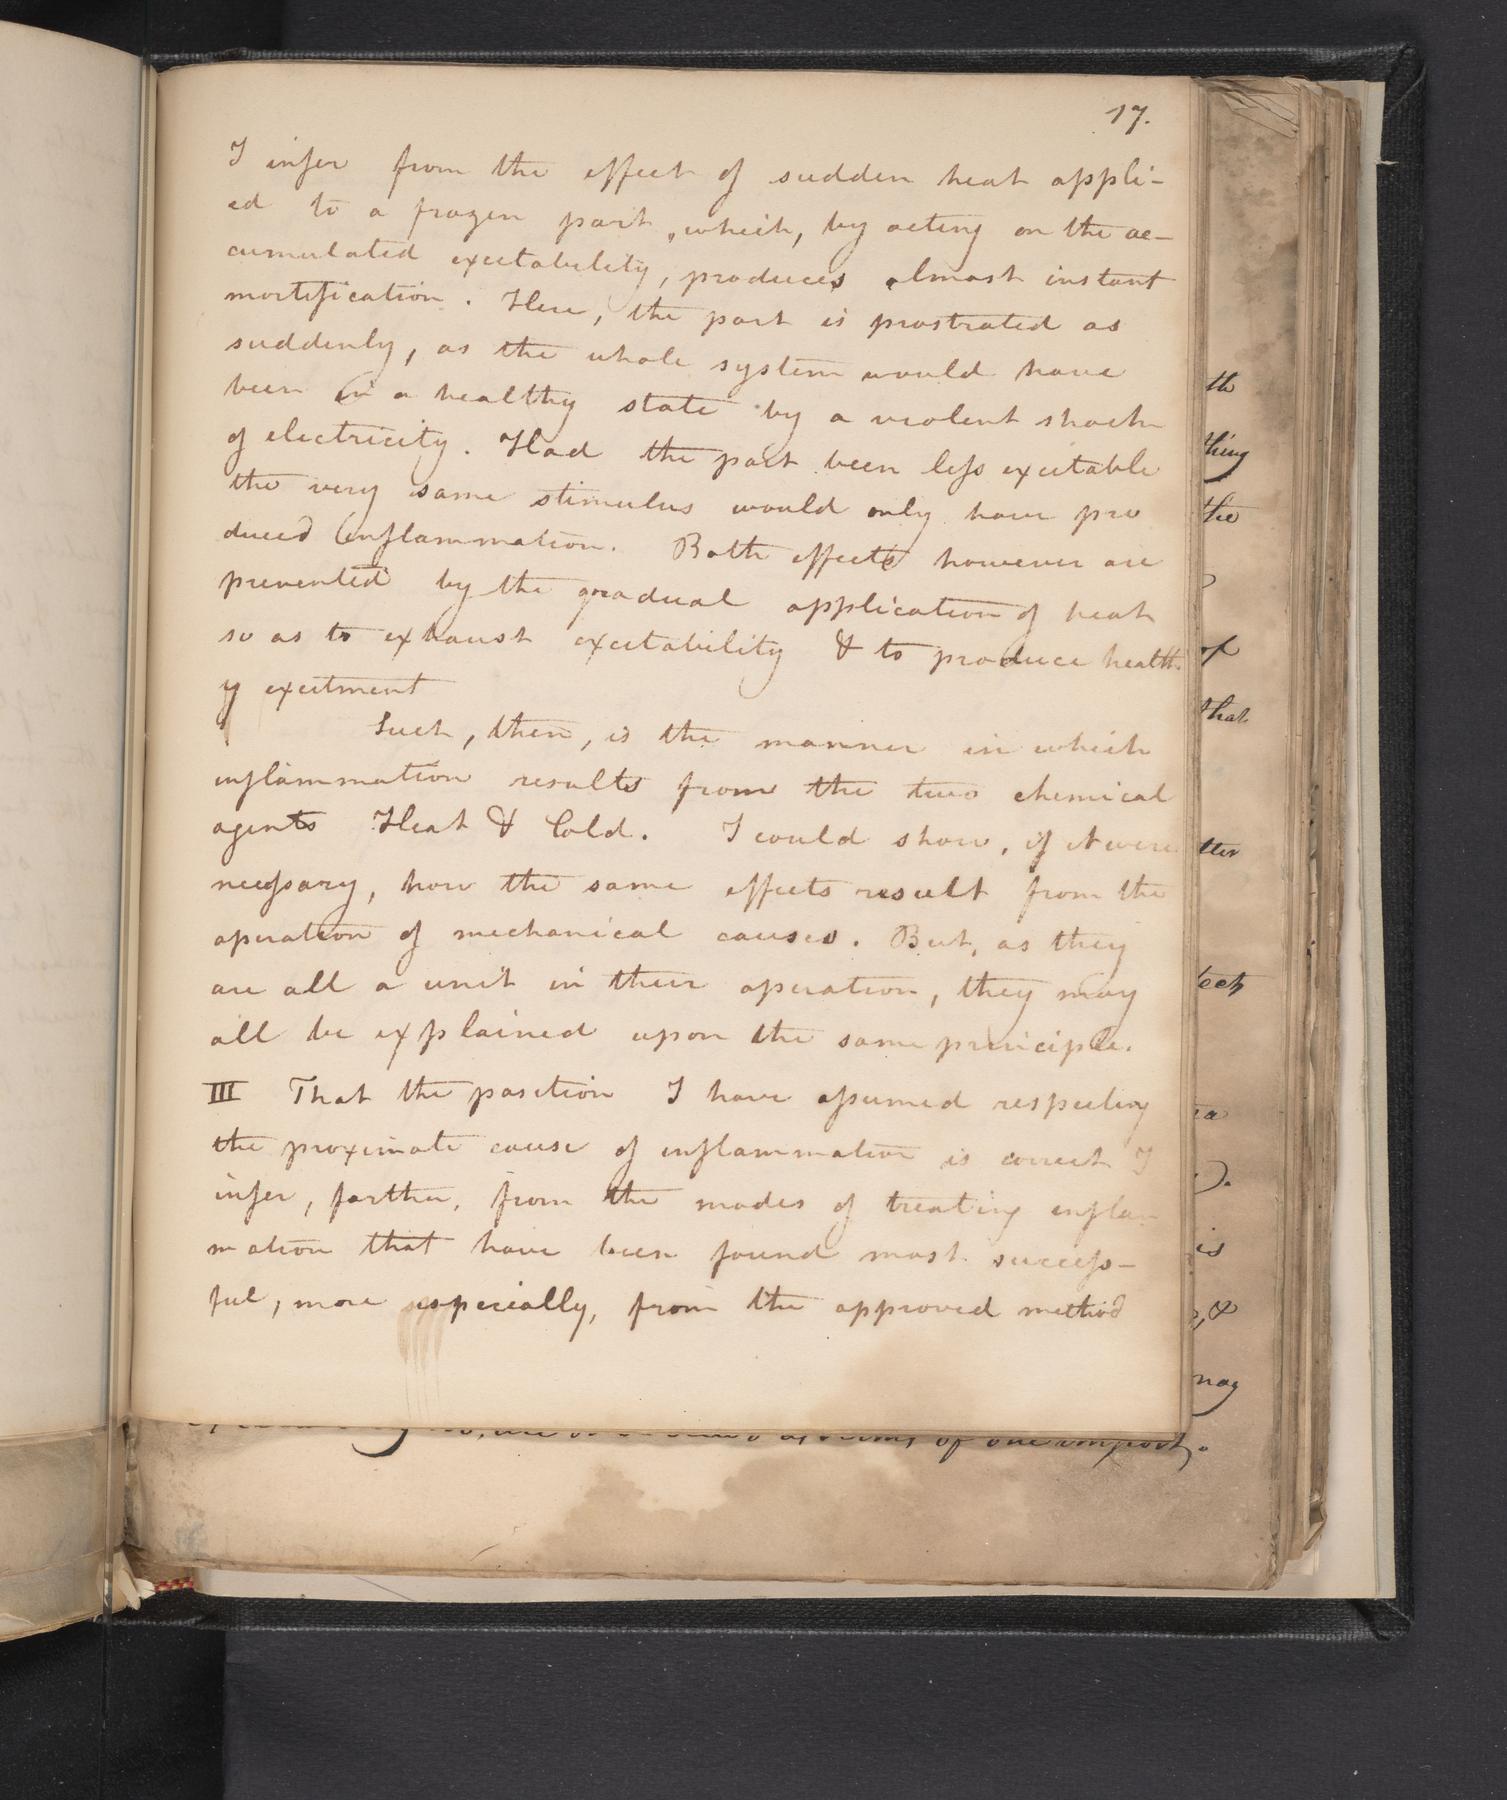 17.
I infer from the effect of sudden heat appli-
ed to a frozen part, which, by acting on the ac-
cumulated excitability, produces almost instant
mortification. Here, the part is prostrated as
suddenly, as the whole system would have
been in a healthy state by a violent shock
of electricity. Had the part been less excitable
the very same stimulus would only have pro
duced inflammation. Both effects however are
prevented by the gradual application of heat
so as to exhaust excitability & to produce health
y excitment
Such, then, is the manner in which
inflammation results from the two chemical
agents Heat & Cold. I could show, if it were
necessary, how the same effects result from the
operation of mechanical causes. But, as they
are all a unit in their operation, they may
all be explained upon the same principle.
III That the position I have assumed respecting
the proximate cause of inflammation is correct I
infer, farther, from the modes of treating inflam
mation that have been found most success-
ful, more especially, from the approved method
th
thing
the
of
that
tter
is
may
of one import.